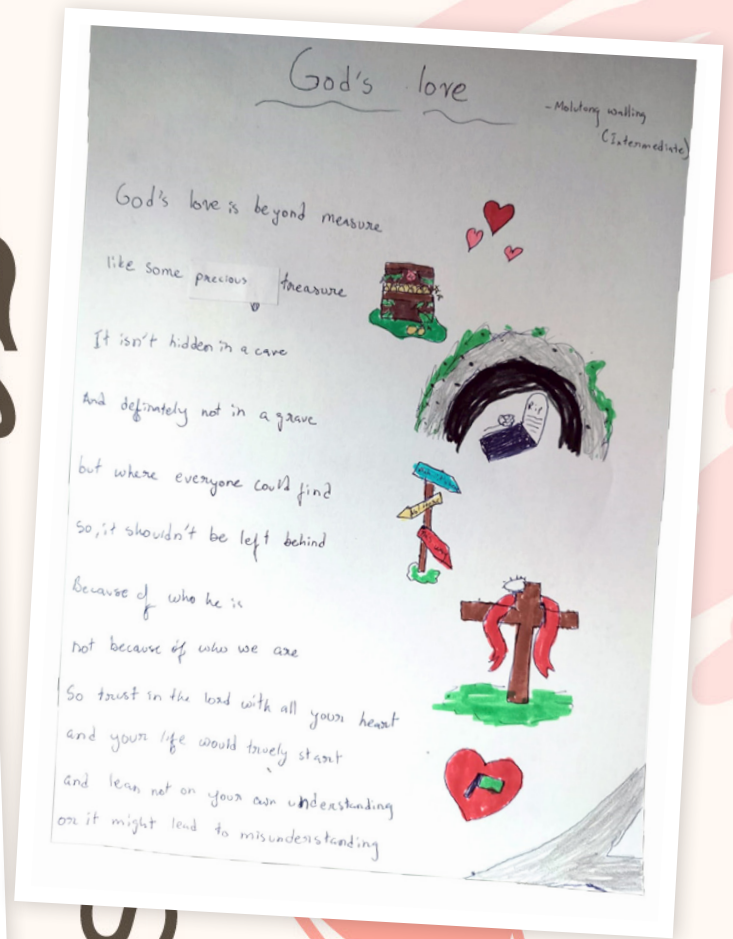 God's love
- Molutong walling
(Intermediate)
God's love is beyond measure
like some precious treasure
It isn't hidden in a cave
And definately not in a grave
R.I.P
but where everyone could find
so, it shouldn't be left behind
Because of who he is
not because of who we are
So trust in the lord with all your heart
and your life would truely start
and lean not on your own understanding
or it might lead to misunderstanding